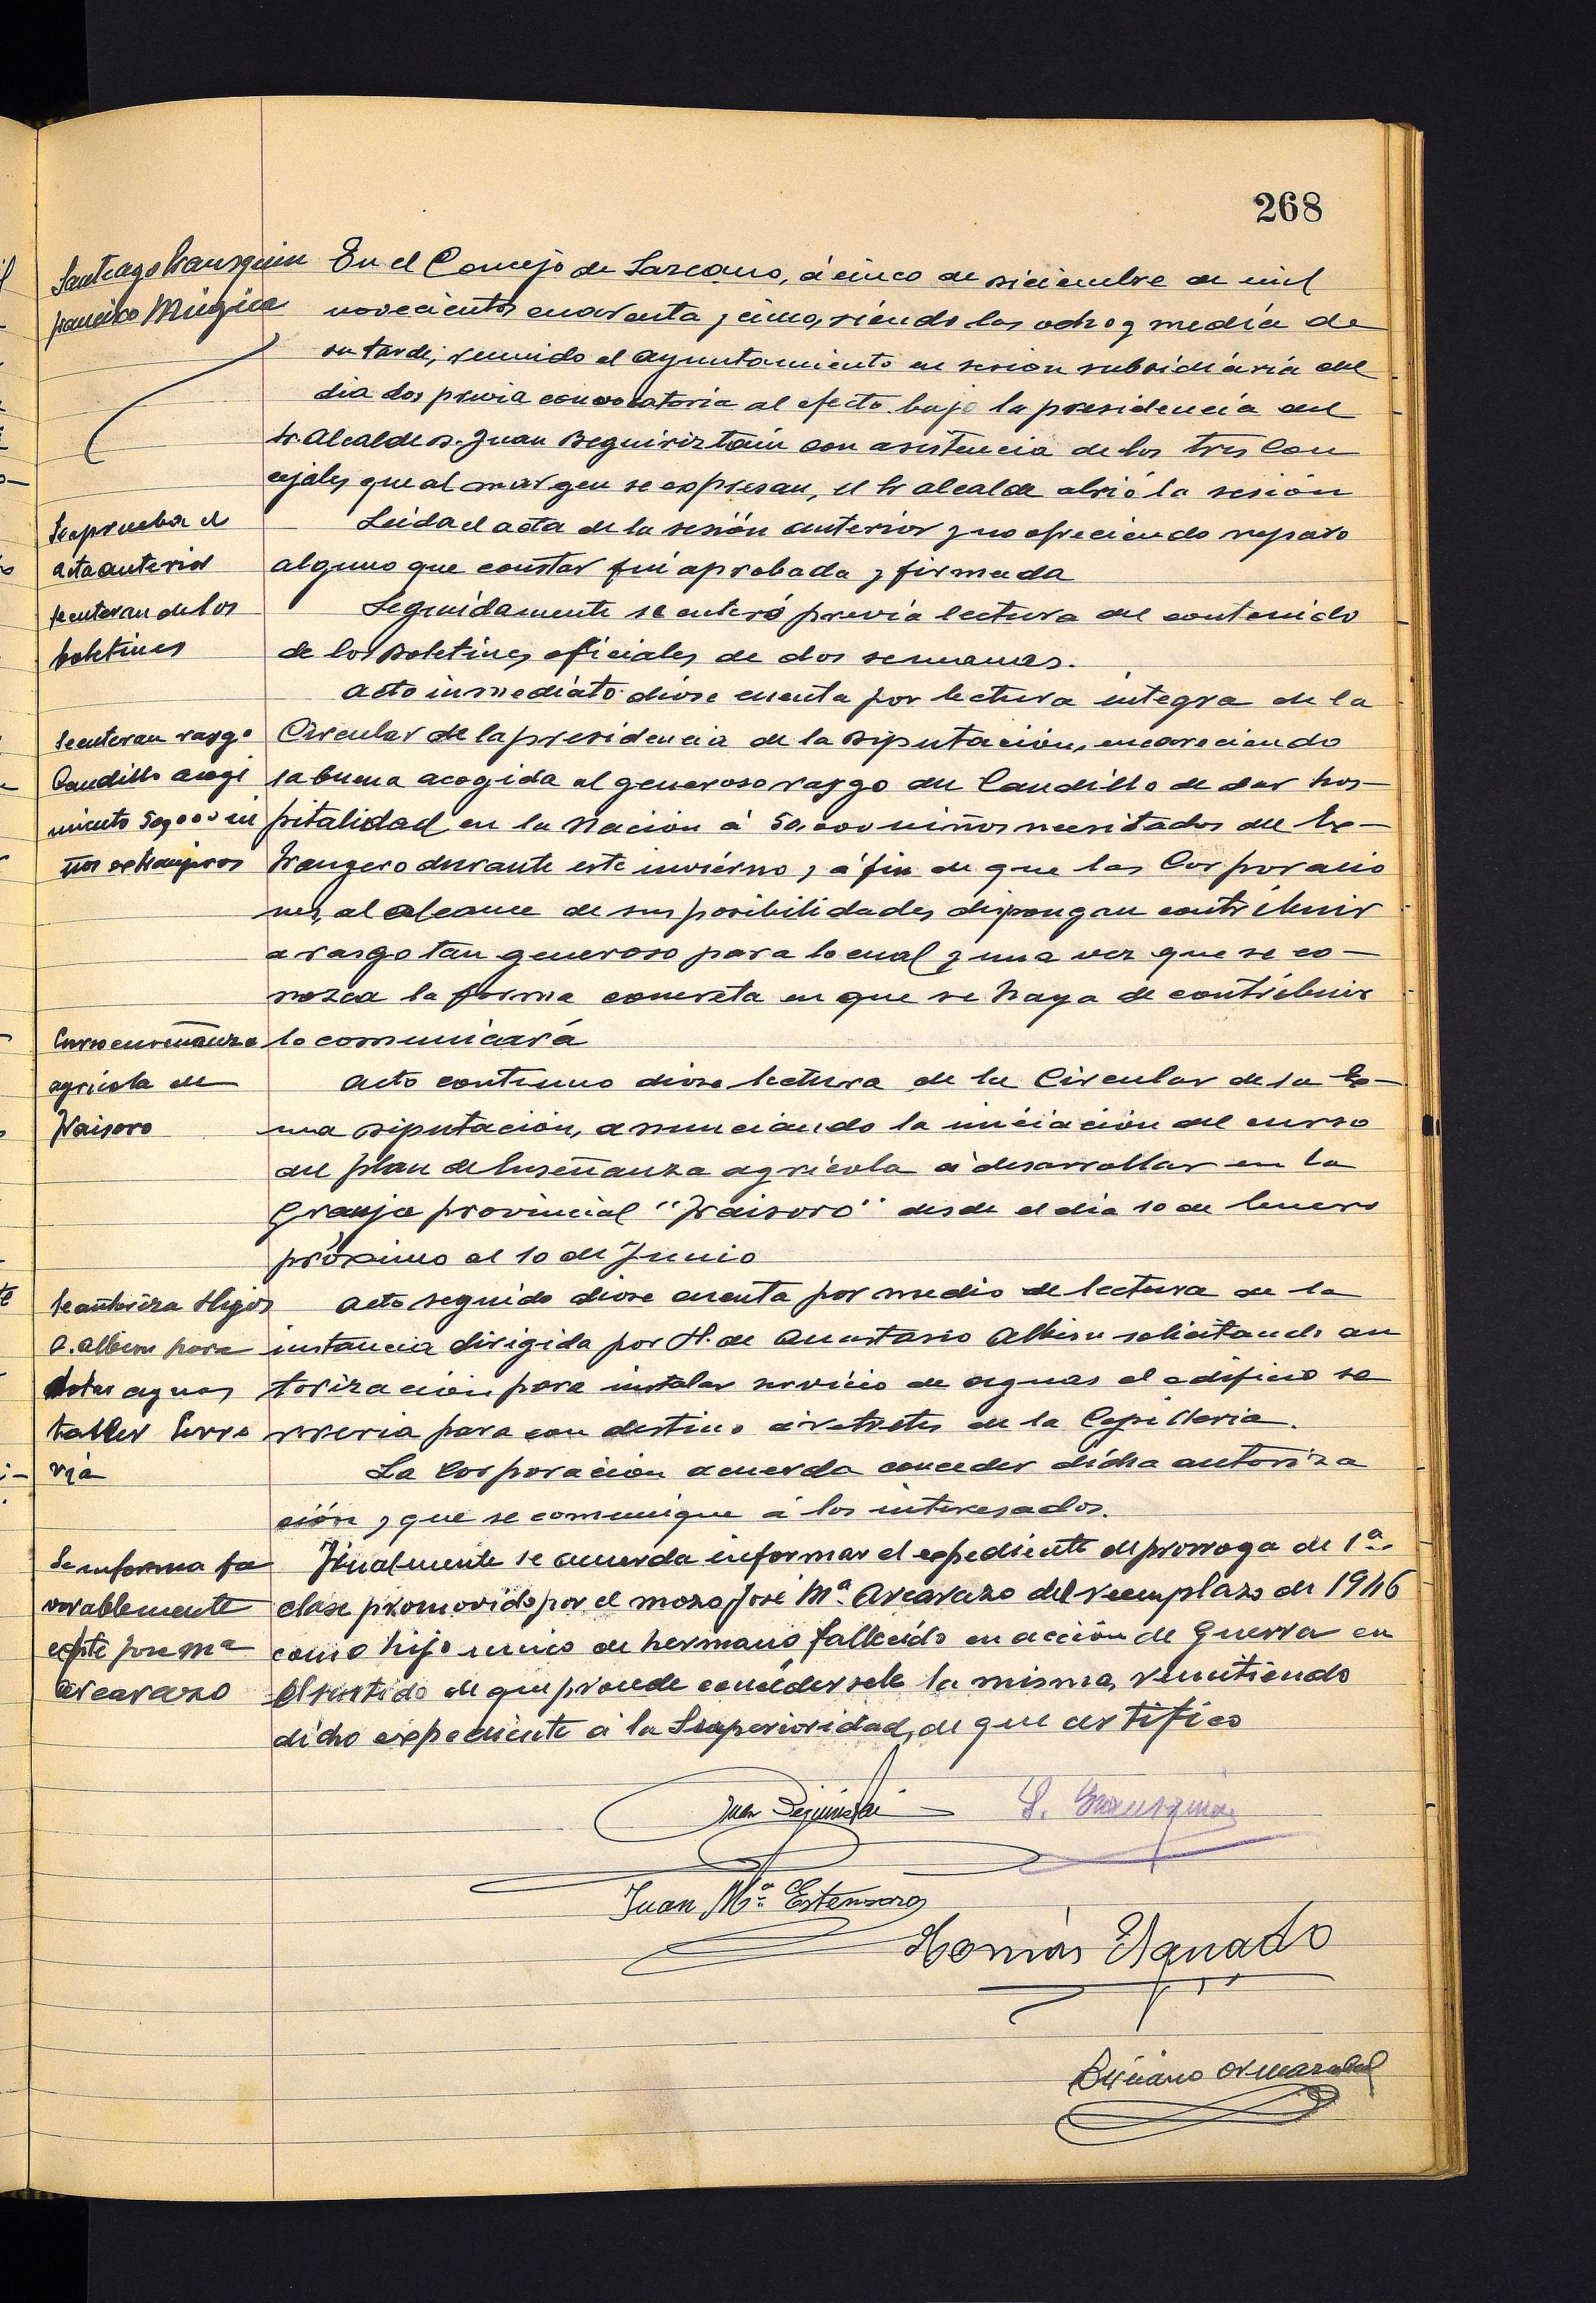 268
Santiago Irausquin
Francisco Múgica
En el Concejo de Lazcano, á cinco de diciembre de mil
novecientos cuarenta y cinco, siendo las ocho y media de
su tarde, reunido el ayuntamiento en sesion subsidiária del
dia dos previa convocatoria al efecto bajo la presidencia del
Sr. Alcalde D. Juan Beguiriztain con asistencia de los tres Con
cejales que al margen se expresan, el Sr alcalde abrió la sesión
Se aprueba el
acta anterior
Leida el acta de la sesión anterior y no ofreciendo reparo
alguno que constar fué aprobada y firmada
Se enteran de los
boletines
Seguidamente se enteró previa lectura del contenido
de los Boletines oficiales de dos semanas.
Acto inmediato diose cuenta por lectura integra de la
Se enteran rasgo
Caudillo acogi
miento 50,000 ni
ños extranjeros
Circular de la presidencia de la Diputación, encareciendo
la buena acogida al generoso rasgo del Caudillo de dar hos-
pitalidad en la Nación á 50,000 niños necesitados del Ex-
trangero durante este invierno, y á fin de que las Corporacio
nes al alcance de sus posibilidades dispongan contribuir
a rasgo tan generoso para lo cual y una vez que se co-
nozca la forma concreta en que se haya de contribuir
lo comunicará
Curso enseñanza
agricola en
Fraisoro
Acto continuo diose lectura de la Circular de la Ex-
ma Diputación, anunciando la iniciación del curso
del plan de Enseñanza agricola á desarrollar en la
Granja provincial "Fraisoro" desde el dia 10 de Enero
próximo al 10 de Junio
Se autoriza Hijos
A. Albisu para
dotar aguas
taller Serre
ria
Acto seguido diose cuenta por medio de lectura de la
instancia dirigida por H. de Anastasio Albisu solicitando au
torización para instalar servicio de aguas al edificio se
rreria para con destino á retretes de la Cepilleria.
La Corporación acuerda conceder dicha autoriza
ción y que se comunique á los interesados.
Se informa fa
vorablemente
expte Jose Mª
Arcarazo
Finalmente se acuerda informar el expediente de prorroga de 1ª
clase promovido por el mozo José Mª Arcarazo del reemplazo de 1946
como hijo unico de hermano fallecido en acción de guerra en
el sentido de que procede concedersele la misma, remitiendo
dicho expediente á la Superioridad, de que certifico
Juan Beguiristai
S. Irausquin
Juan Mª Estensoro
Tomás Aguado
Ormazabal